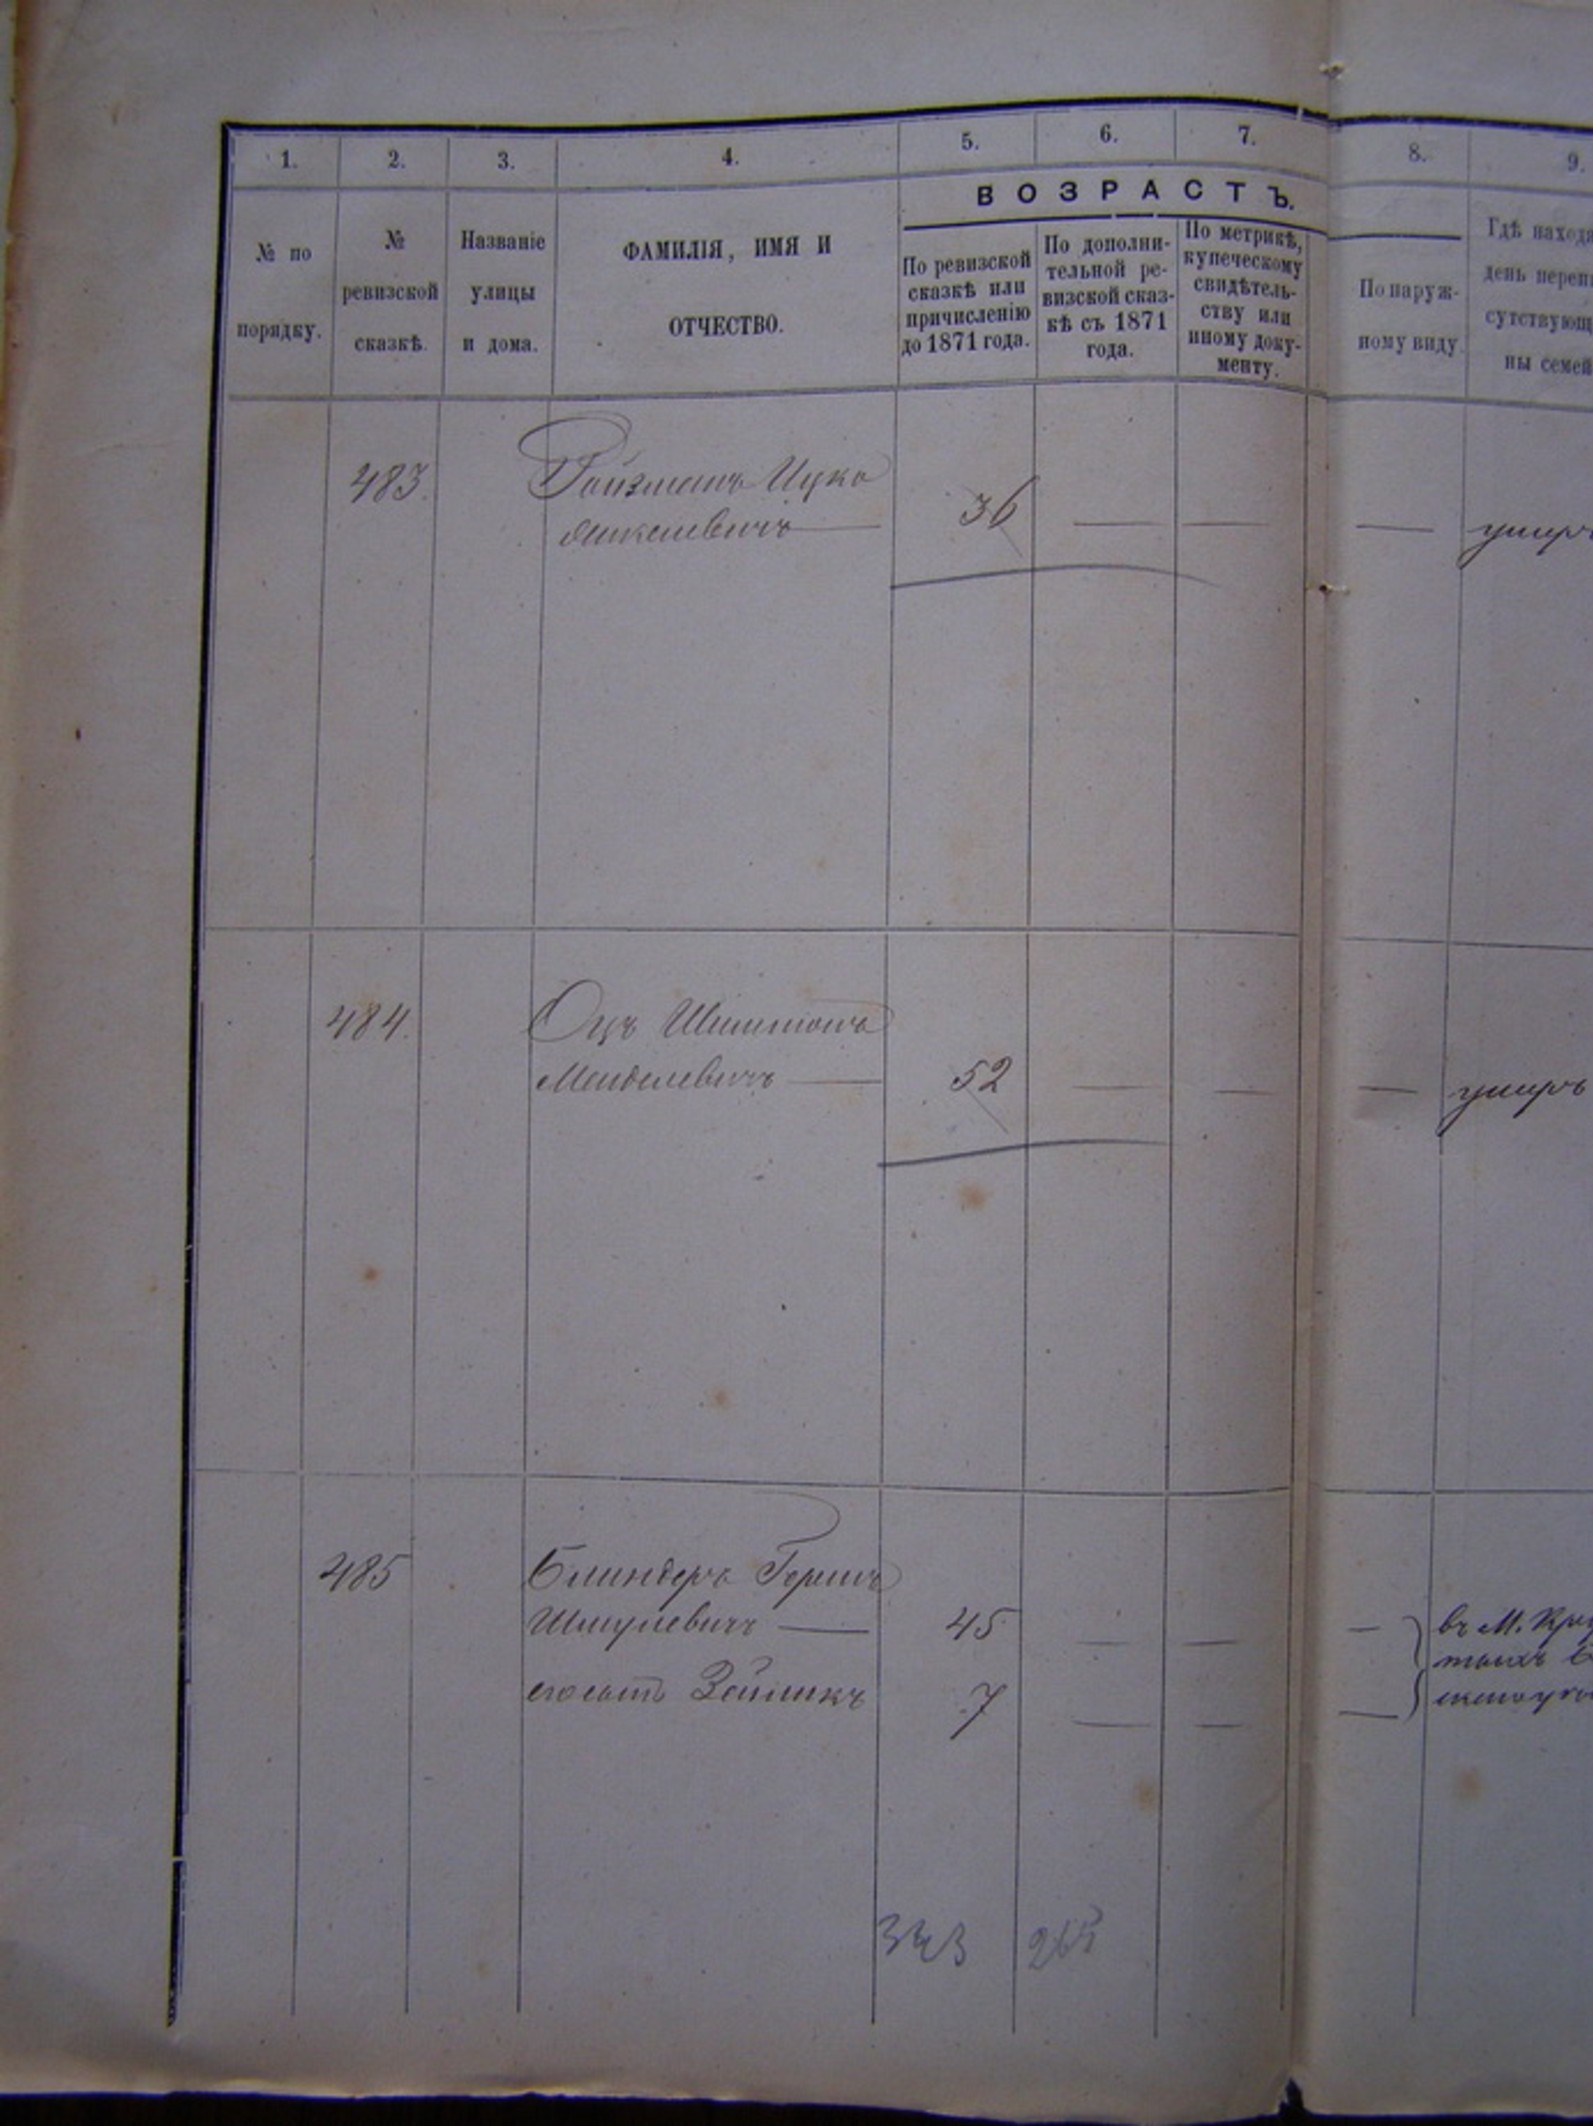 1. 2. 3. 4. 5. 6. 7. 8. 9.
ВОЗРАСТЪ.
№ по
порядку.
№
ревизской
сказкѣ.
Названіе
улицы
и дома.
ФАМИЛІЯ, ИМЯ И
ОТЧЕСТВО.
По ревизской
сказкѣ или
причисленію
до 1871 года.
По дополни-
тельной ре-
визской сказ-
кѣ съ 1871
года.
По метрикѣ,
купеческому
свидѣтель-
ству или
иному доку-
менту.
По наруж-
ному виду.
Гдѣ наход
день переп
сутствующ
ны семей
483. Ройзманъ Ицко
Янкелевичъ — 36 — — — умеръ
484. Оцъ
Менделевичъ — 52 — — — умеръ
485 Блиндеръ Гершъ
Шмулевичъ — 45 — — — въ М.
7 — — —
265